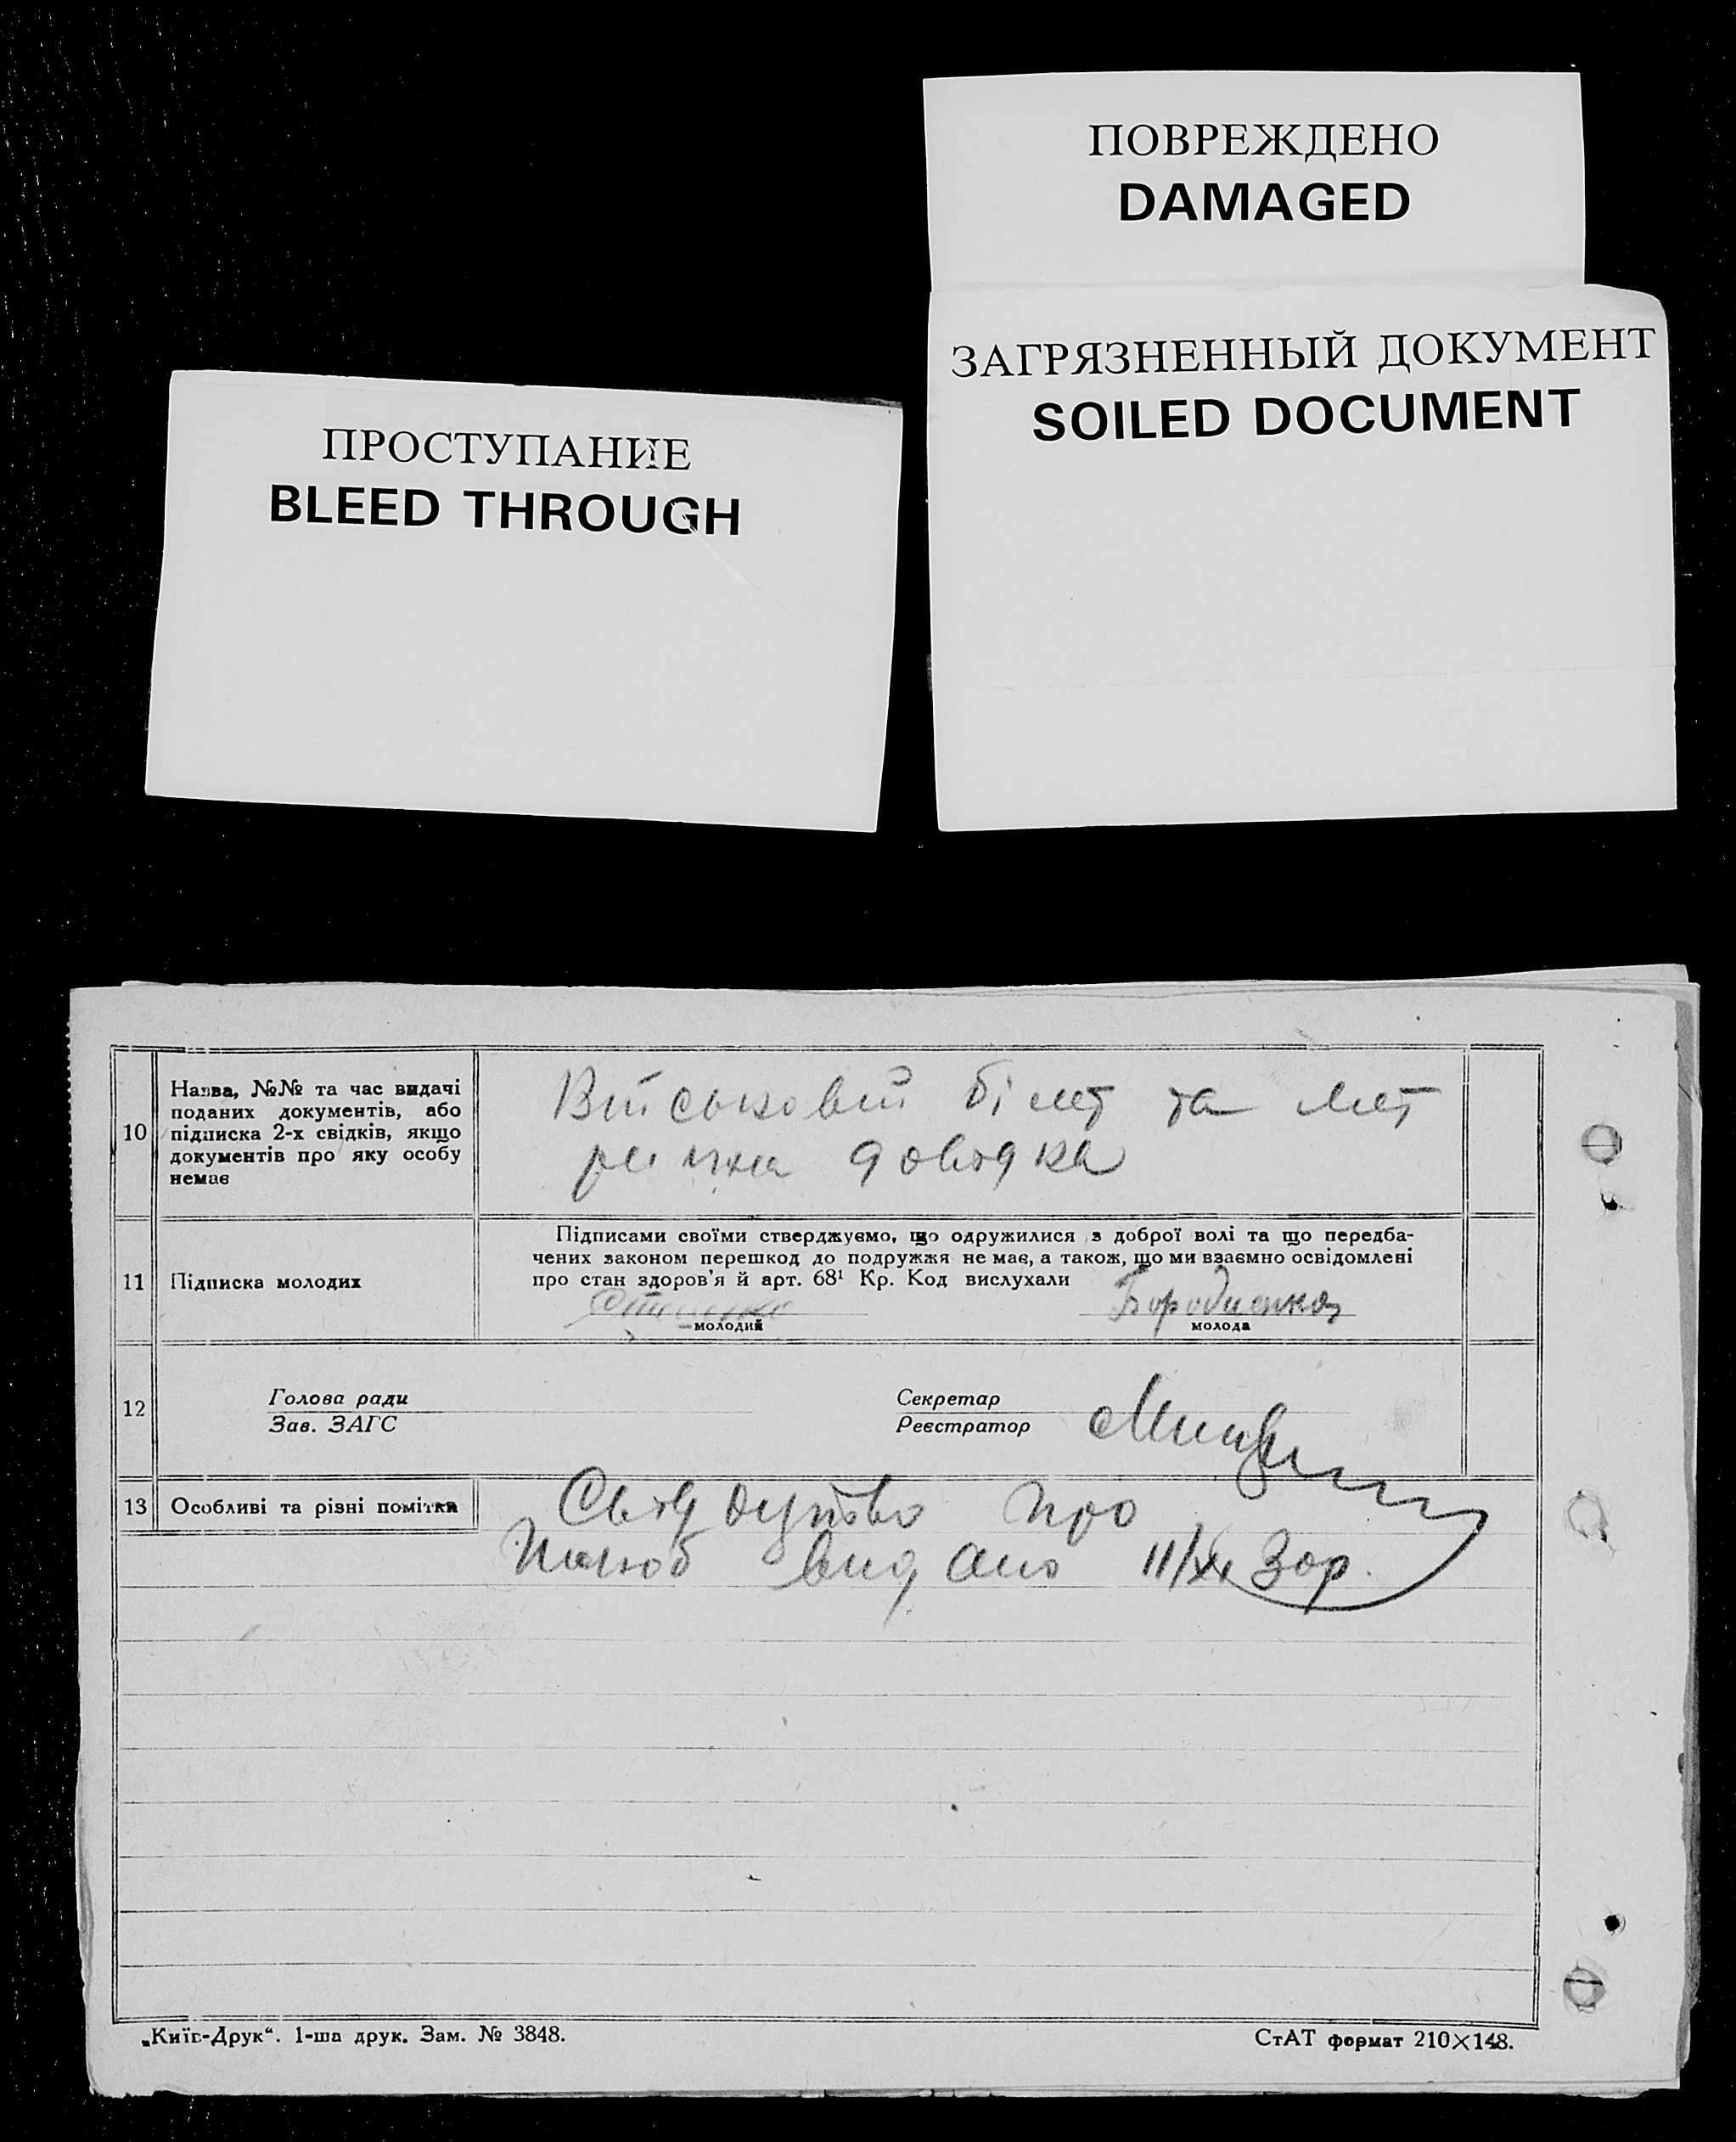 ПОВРЕЖДЕНО
DAMAGED
ЗАГРЯЗНЕННЫЙ ДОКУМЕНТ
SOILED DOCUMENT
ПРОСТУПАНИЕ
BLEED THROUGH
10
Назва, №№ та час видачі
поданих документів, або
підписка 2-х свідків, якщо
документів про яку особу
немає
Військовий білет та мет
рична довідка
11
Підписка молодих
Підписами своїми стверджуємо, що одружилися з доброї волі та що передба-
чених законом перешкод до подружжя не має, а також, що ми взаємно освідомлені
про стан здоров'я й арт. 68¹ Кр. Код вислухали
Бородиенко
молодий
молода
12
Голова ради
Зав. ЗАГС
Секретар
Реєстратор
13
Особливі та різні помітки
Свідоцтво про
шлюб видано 11/XI 30р.
„Київ-Друк“. 1-ша друк. Зам. № 3848.
СтАТ формат 210×148.